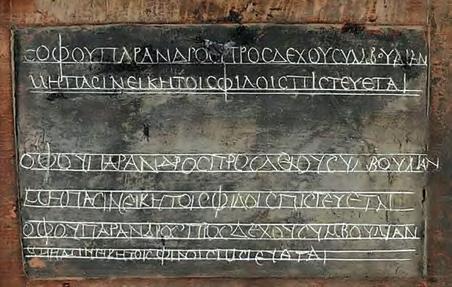 ϹΟΦΟΥΠΑΡΑΝΔΡΟϹΠΡΟϹΔΕΧΟΥϹΥΜΒΟΥΛΙΑΝ
ΜΗΠΑϹΙΝΕΙΚΗΤΟΙϹΦΙΛΟΙϹΠΙϹΤΕΥΕΤΑΙ
ΟΦΟΥΠΑΡΑΝΔΡΟϹΠΡΟϹΔΕΧΟΥϹΥΜΒΟΥΛΙΑΝ
ΗΠΑϹΙΝΕΙΚΗΤΟΙϹΦΙΛΟΙϹΠΙϹΤΕΥΕΤΑΙ
ΟΦΟΥΠΑΡΑΝΔΡΟϹΠΡΟϹΔΕΧΟΥϹΥΜΒΟΥΛΙΑΝ
ΗΠΑϹΙΝΕΙΚΗΤΟΙϹΦΙΛΟΙϹΠΙϹΤΕΥΕΤΑΙ